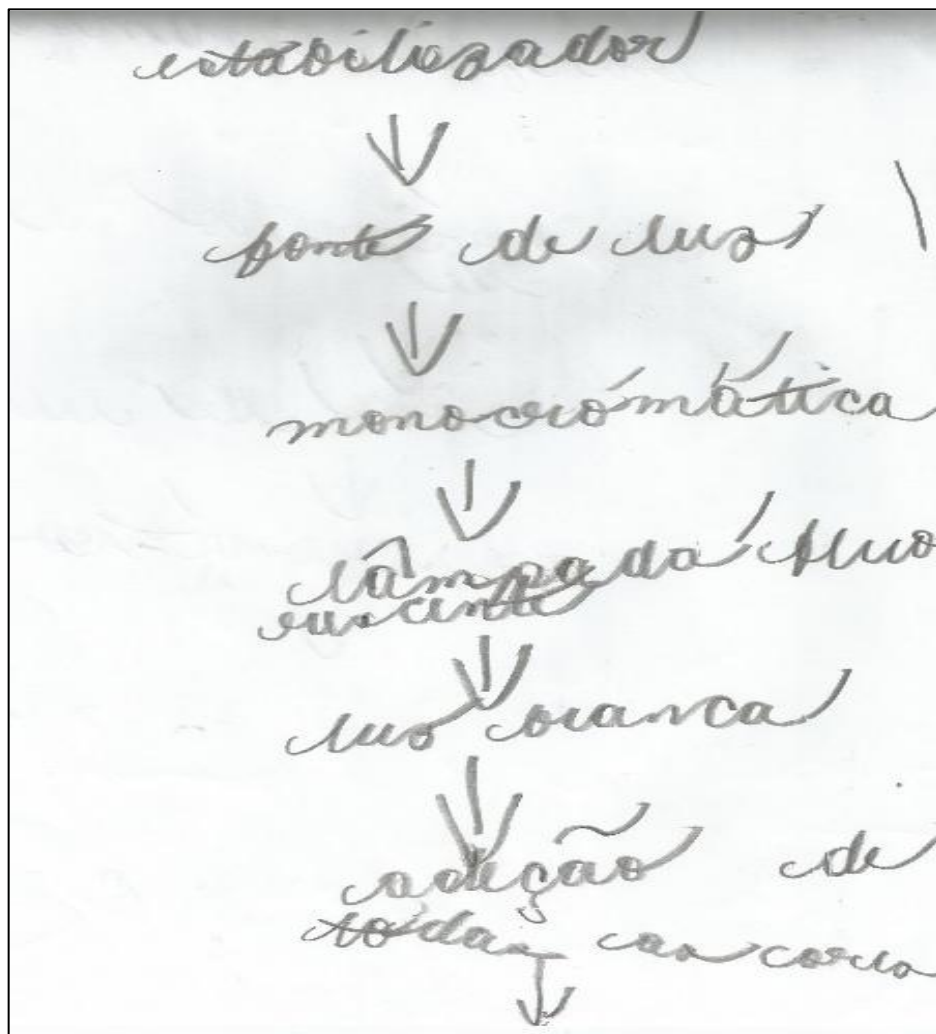 estabilizador
fonte de luz
monocromática
lâmpada fluo
rescente
luz branca
adição de
todas as cores